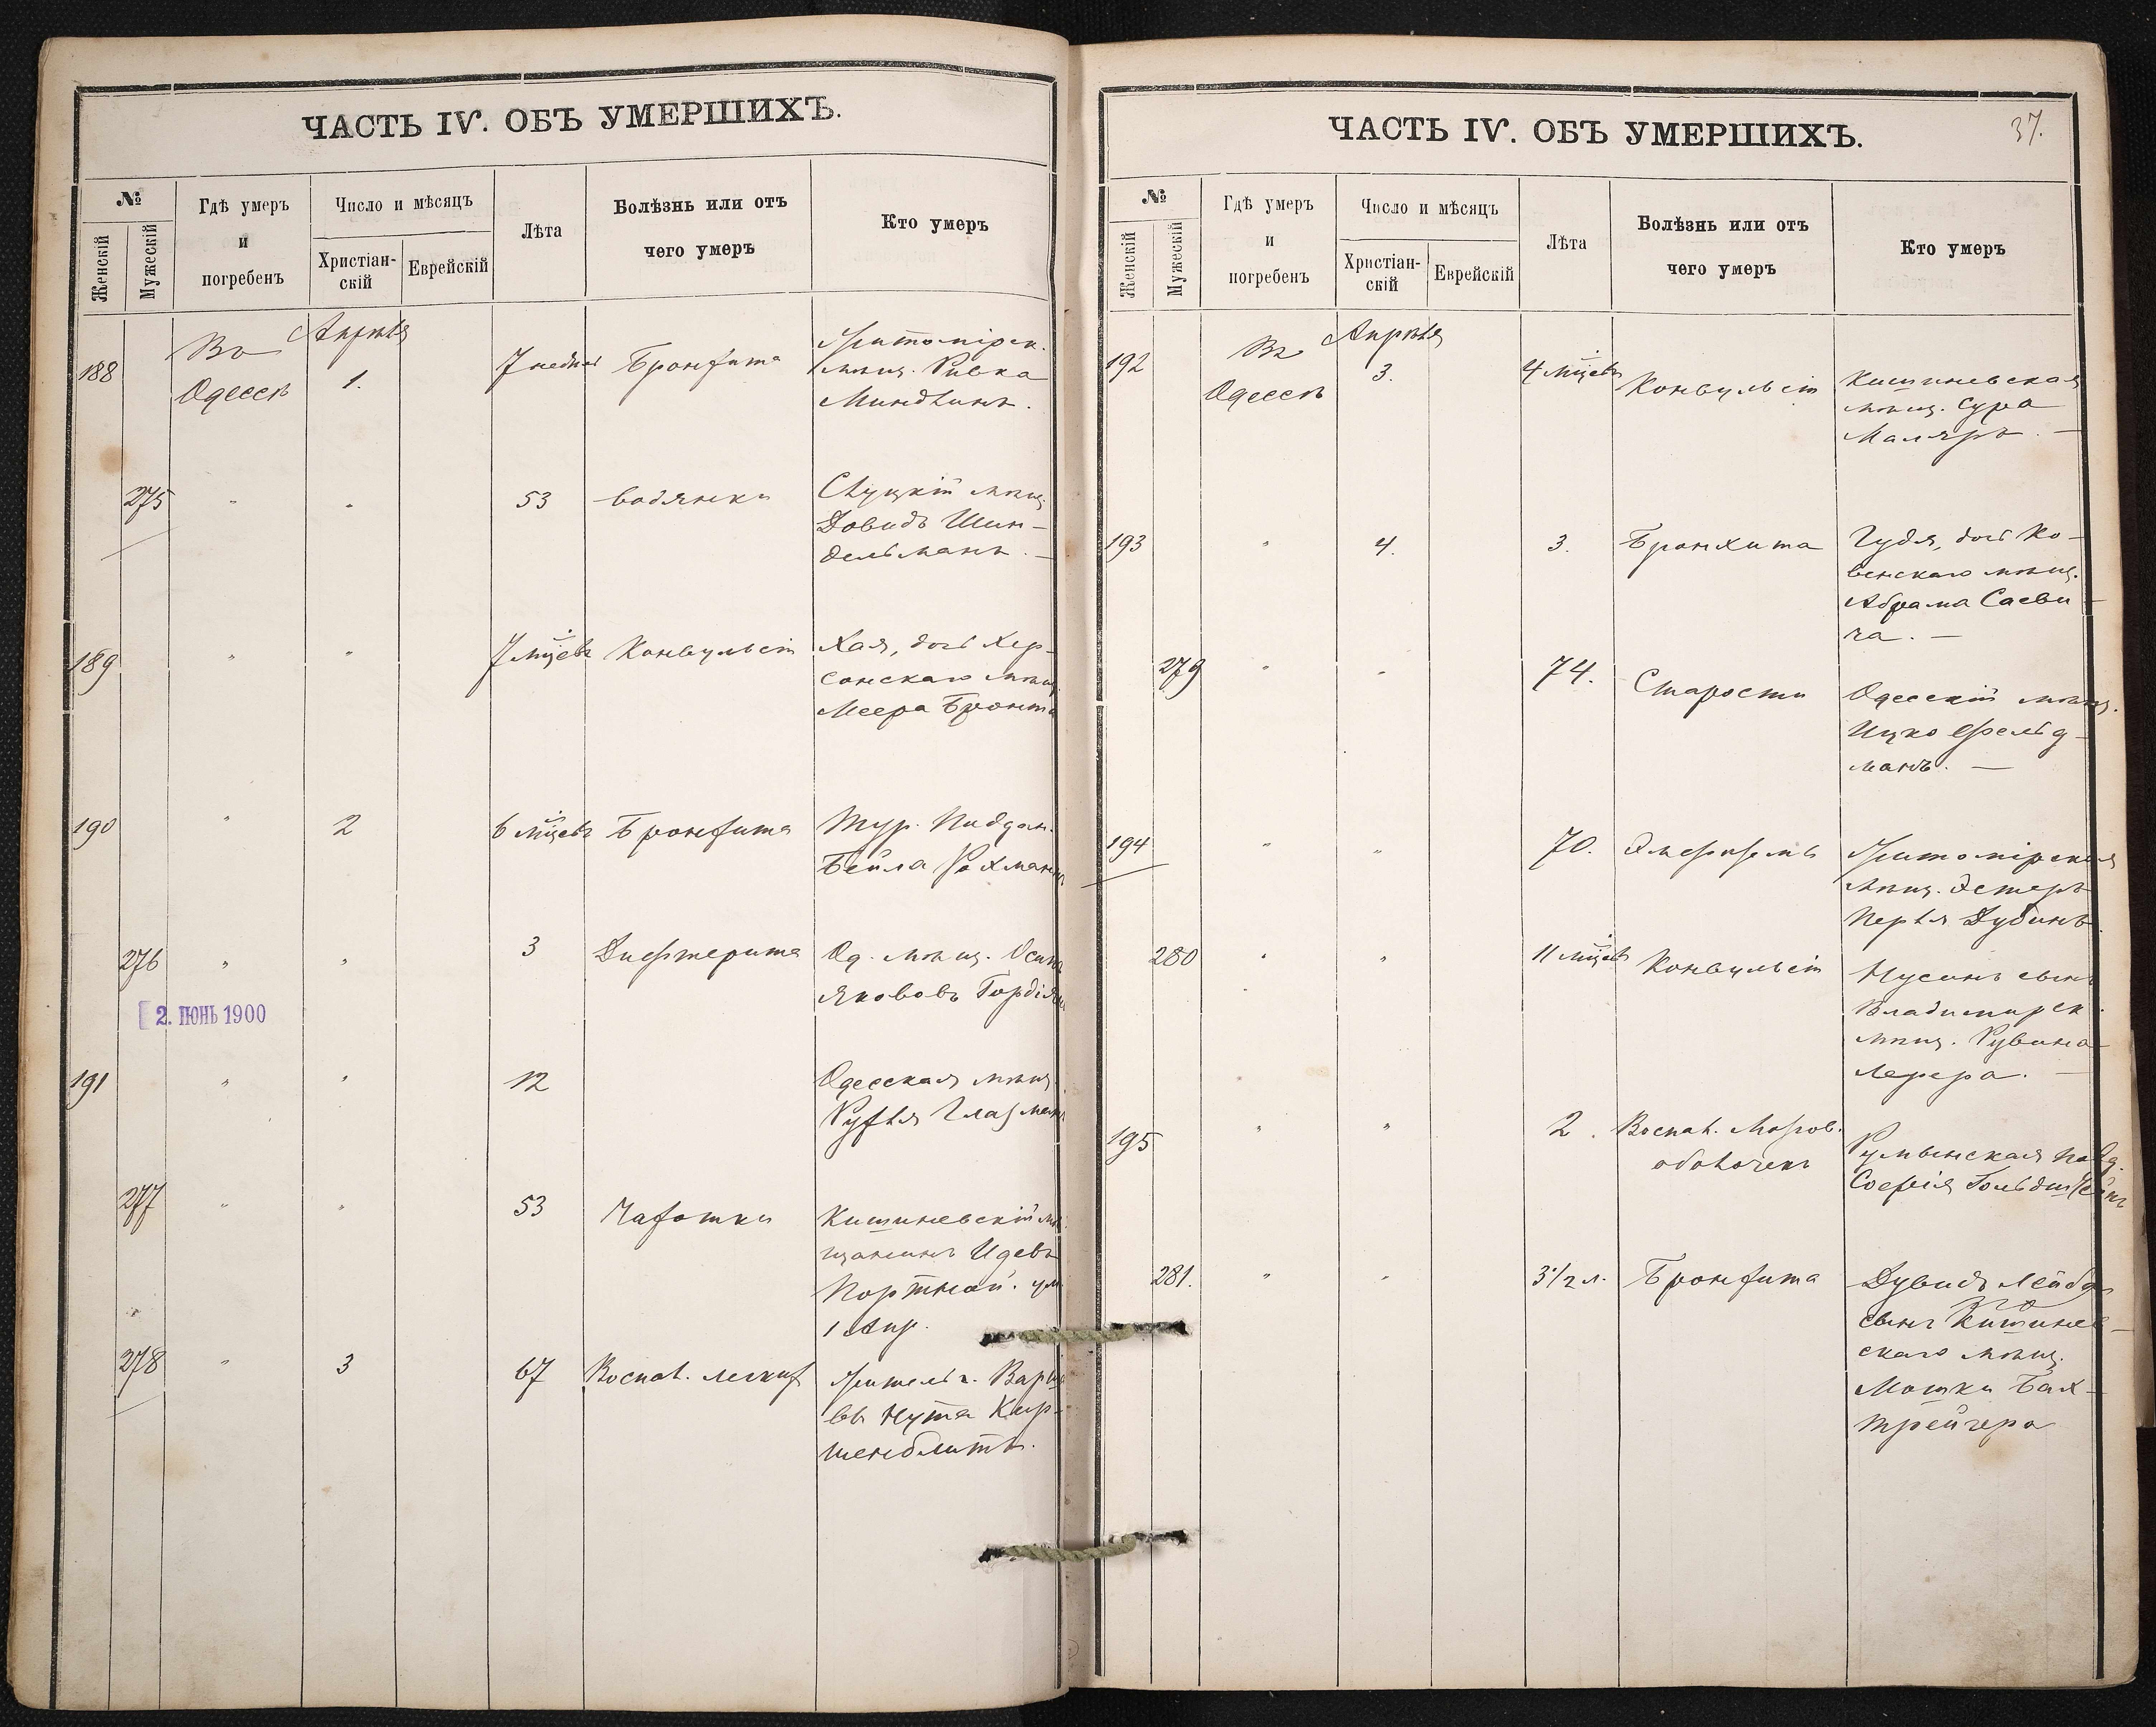 ЧАСТЬ IV. ОБЪ УМЕРШИХЪ.
№
Женскій
Мужескій
Гдѣ умеръ
и
погребенъ
Число и мѣсяцъ
Христіан-
скій
Еврейскій
Лѣта
Болѣзнь или отъ
чего умеръ
Кто умеръ
188
Въ
Одессѣ
Апрѣля
1.
7 недѣль
Бронхита
Житомірск.
мѣщ. Ривка
Миндлинъ.
275
"
"
53
Водянки
Слуцкій мѣщ.
Довидъ Шин-
дельманъ. —
189
"
"
7 мѣсцевъ
Конвульсіи
Хая, дочь Хер-
сонскаго мѣщ.
Меера
190
"
2
6 мѣсцевъ
Бронхита
Тур. Поддан.
Бейла
276
"
"
3
Дифтерита
Од. мѣщ. Осипъ
Якововъ
2. ІЮНЬ 1900
191
"
"
12
Одесская мѣщ.
Рухля Глазманъ
277
"
"
53
Чахотки
Кишиневскій мѣ-
щанинъ Идель
Портной. ум.
1 Апр.
278
"
3
67
Воспал. легких
Житель г. Варша
вы Нута Кир-
шенблитъ.
ЧАСТЬ IV. ОБЪ УМЕРШИХЪ.
37.
№
Женскій
Мужескій
Гдѣ умеръ
и
погребенъ
Число и мѣсяцъ
Христіан-
скій
Еврейскій
Лѣта
Болѣзнь или отъ
чего умеръ
Кто умеръ
192
Въ
Одессѣ
Апрѣля
3.
4 мѣсцевъ
Конвульсіи
Кишиневская
мѣщ. Сура
Маляръ. —
193
"
4.
3.
Бронхита
Гудя, дочь Ко-
венскаго мѣщ.
Абрама Саеви-
ча. —
279
"
"
74.
Старости
Одесскій мѣщ.
Ицко Фельд-
манъ. —
194
"
"
70.
Эмфизема
Житомірская
мѣщ. Эстеръ
Перля Дубинъ.
280
"
"
11 мѣсцевъ
Конвульсіи
Нусинъ сынъ
Владимирск.
мѣщ. Рувина
Лерера. —
195
"
"
2.
Воспал. Мозгов.
оболочекъ
Румынская подд.
Софія Гольдштейнъ
281.
"
"
3 1/2 л.
Бронхита
Дувидъ Лейба
сынъ Кишинев-
скаго мѣщ.
Мошки Бах-
трейгера